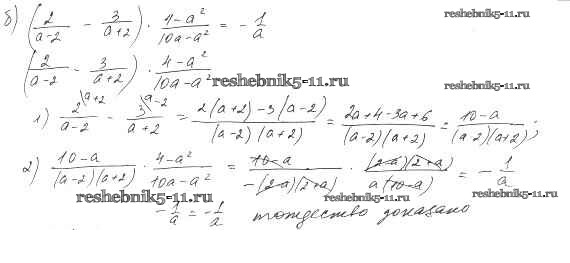 б) (2/(a-2) - 3/(a+2)) · (4-a²)/(10a-a²) = -1/a
reshebnik5-11.ru
(2/(a-2) - 3/(a+2)) · (4-a²)/(10a-a²)
reshebnik5-11.ru
reshebnik5-11.ru
1) 2\a+2/(a-2) - 3\a-2/(a+2) = (2(a+2)-3(a-2))/((a-2)(a+2)) = (2a+4-3a+6)/((a-2)(a+2)) = (10-a)/((a-2)(a+2));
2) (10-a)/((a-2)(a+2)) · (4-a²)/(10a-a²) = (10-a)/(-(2-a)(2+a)) · ((2-a)(2+a))/(a(10-a)) = -1/a
reshebnik5-11.ru
reshebnik5-11.ru
-1/a = -1/a тождество доказано